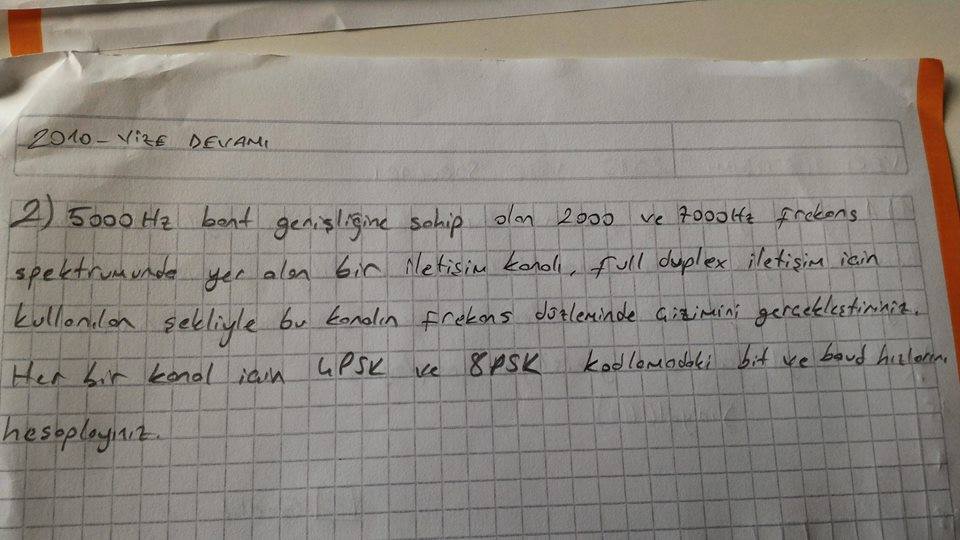 2010 - VİZE DEVAMI
2) 5000 Hz bant genişliğine sahip olan 2000 ve 7000Hz frekans
spektrumunda yer alan bir iletişim kanalı, full duplex iletişim için
kullanılan şekliyle bu kanalın frekans düzleminde çizimini gerçekleştiriniz.
Her bir kanal için 4PSK ve 8PSK kodlamadaki bit ve baud hızlarını
hesaplayınız.